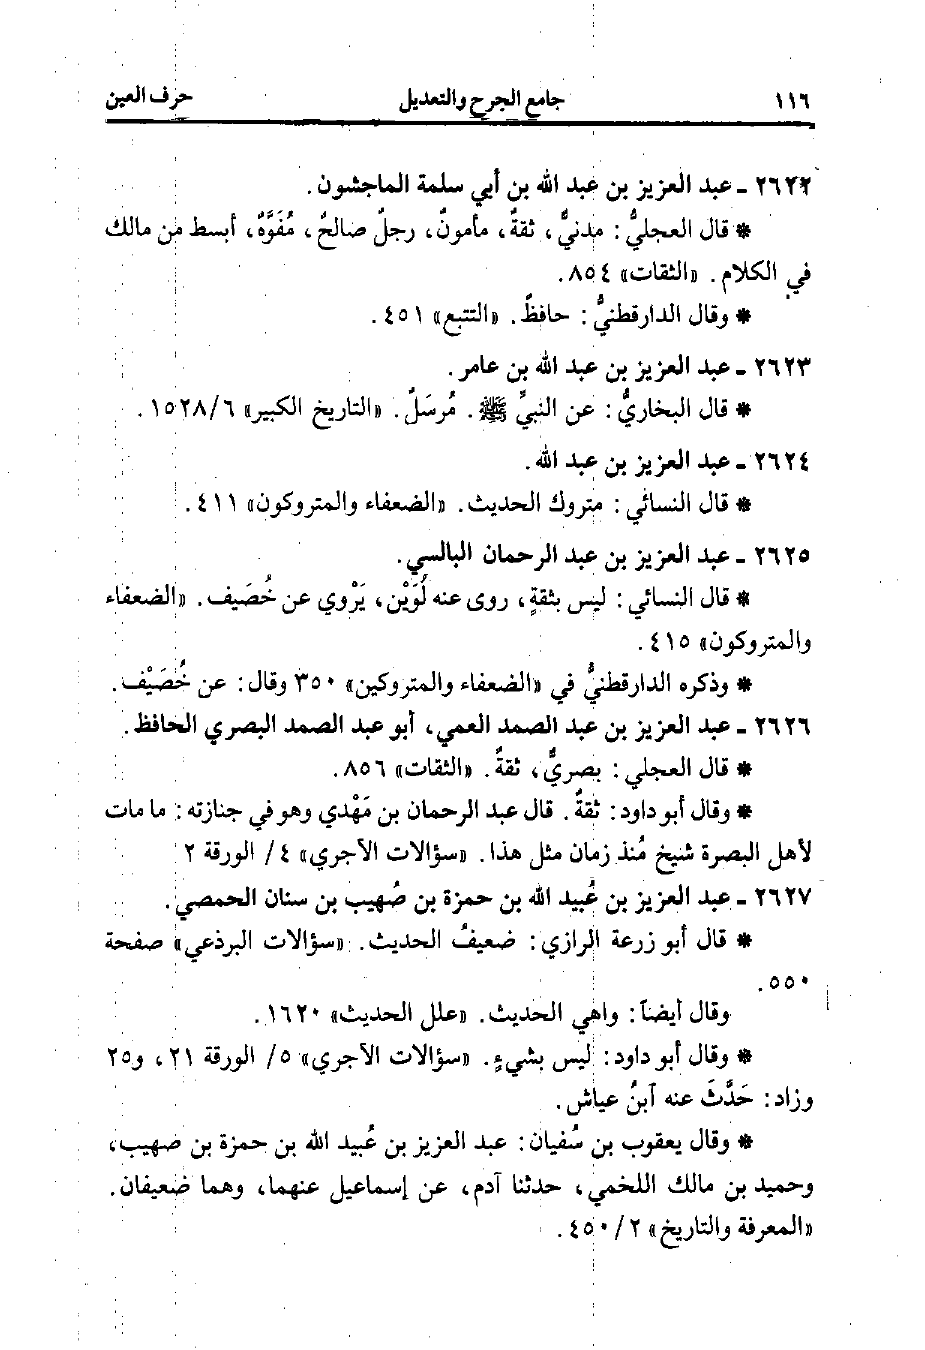 ١١٦ جامع الجرح والتعديل حرف العين
٢٦٢٢ ـ عبد العزيز بن عبد الله بن أبي سلمة الماجشون.
* قال العجليُّ: مدنيٌّ، ثقةٌ، مأمونٌ، رجلٌ صالحٌ، مُفَوَّهٌ، أبسط من مالك
في الكلام. «الثقات» ٨٥٤.
* وقال الدارقطنيُّ: حافظٌ. «التتبع» ٤٥١.
٢٦٢٣ ـ عبد العزيز بن عبد الله بن عامر.
* قال البخاريُّ: عن النبيِّ ﷺ. مُرسَلٌ. «التاريخ الكبير» ٦/١٥٢٨.
٢٦٢٤ ـ عبد العزيز بن عبد الله.
* قال النسائي: متروك الحديث. «الضعفاء والمتروكون» ٤١١.
٢٦٢٥ ـ عبد العزيز بن عبد الرحمان البالسي.
* قال النسائي: ليس بثقةٍ، روى عنه لُوَيْن، يَرْوي عن خُصَيف. «الضعفاء
والمتروكون» ٤١٥.
* وذكره الدارقطنيُّ في «الضعفاء والمتروكين» ٣٥٠ وقال: عن خُصَيْف.
٢٦٢٦ ـ عبد العزيز بن عبد الصمد العمي، أبو عبد الصمد البصري الحافظ.
* قال العجلي: بصريٌّ، ثقةٌ. «الثقات» ٨٥٦.
* وقال أبو داود: ثقةٌ. قال عبد الرحمان بن مَهْدي وهو في جنازته: ما مات
لأهل البصرة شيخ مُنذ زمان مثل هذا. «سؤالات الآجري» ٤/ الورقة ٢
٢٦٢٧ ـ عبد العزيز بن عُبيد الله بن حمزة بن صُهيب بن سنان الحمصي.
* قال أبو زرعة الرازي: ضعيفُ الحديث. «سؤالات البرذعي» صفحة
٥٥٠.
وقال أيضاً: واهي الحديث. «علل الحديث» ١٦٢٠.
* وقال أبو داود: ليس بشيءٍ. «سؤالات الآجري» ٥/ الورقة ٢١، و٢٥
وزاد: حَدَّثَ عنه آبنُ عياش.
* وقال يعقوب بن سُفيان: عبد العزيز بن عُبيد الله بن حمزة بن صهيب،
وحميد بن مالك اللخمي، حدثنا آدم، عن إسماعيل عنهما، وهما ضعيفان.
«المعرفة والتاريخ» ٢/٤٥٠.